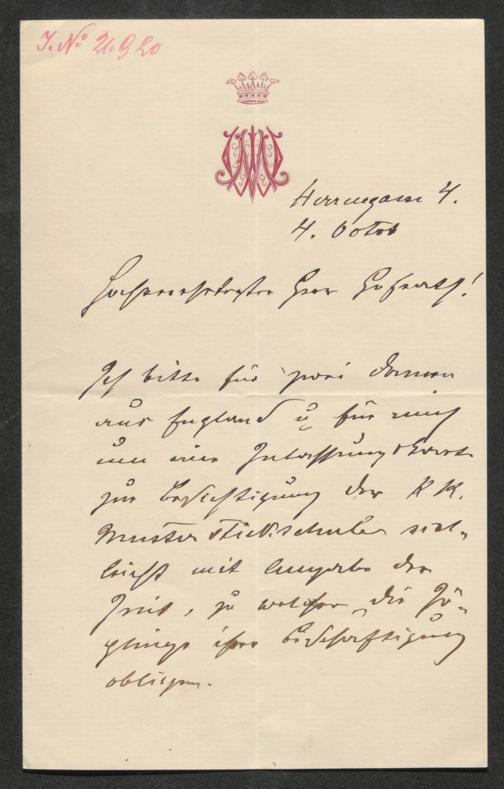 J. № 21920
Herrengasse 4.
4. Octob
Hochverehrtester Herr Hofrath!
Ich bitte für zwei Damen
aus England u für mich
um eine Zulassungskarte
zur Besichtigung der K K.
Musterstickschule viel-
leicht mit Angabe der
Zeit, zu welcher die Zö-
glinge ihrer Beschäftigung
obliegen.